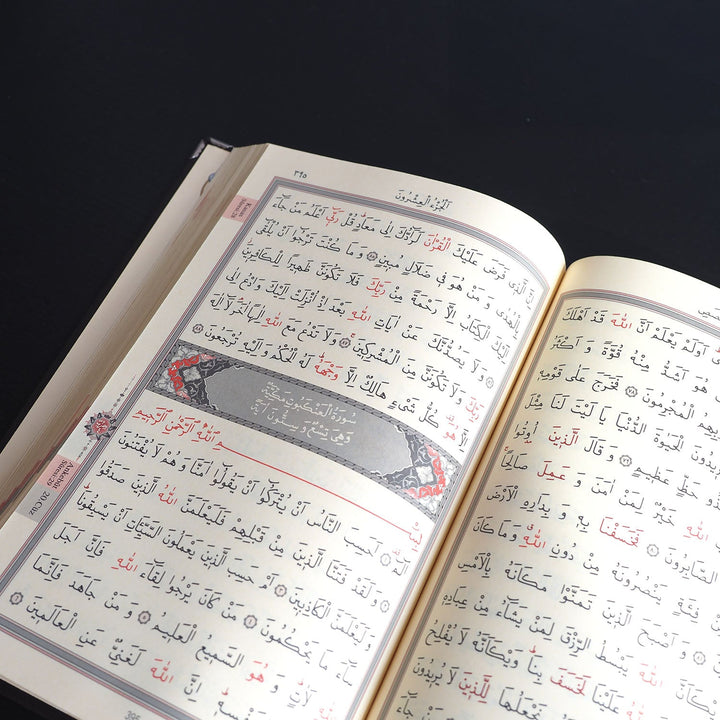 اَوَلَمْ يَعْلَمْ اَنَّ اللّٰهَ قَدْ اَهْلَكَ
هُوَ اَشَدُّ مِنْهُ قُوَّةً وَ اَكْثَرُ
الْمُجْرِمُونَ فَخَرَجَ عَلٰى قَوْمِهِ
يُرِيدُونَ الْحَيٰوةَ الدُّنْيَا يَا لَيْتَ لَنَا مِثْلَ
حَظٍّ عَظِيمٍ ﴿٧٩﴾ وَ قَالَ الَّذِينَ اُوتُوا
خَيْرٌ لِمَنْ اٰمَنَ وَ عَمِلَ صَالِحًا
الصَّابِرُونَ ﴿٨٠﴾ فَخَسَفْنَا بِهِ وَ بِدَارِهِ الْاَرْضَ
فِئَةٍ يَنْصُرُونَهُ مِنْ دُونِ اللّٰهِ وَمَا كَانَ
وَ اَصْبَحَ الَّذِينَ تَمَنَّوْا مَكَانَهُ بِالْاَمْسِ
اللّٰهَ يَبْسُطُ الرِّزْقَ لِمَنْ يَشَاءُ مِنْ عِبَادِهِ
اللّٰهُ عَلَيْنَا لَخَسَفَ بِنَا وَيْكَاَنَّهُ لَا يُفْلِحُ
نَجْعَلُهَا لِلَّذِينَ لَا يُرِيدُونَ
اَلْجُزْءُ الْعِشْرُونَ
٣٩٥
اِنَّ الَّذِي فَرَضَ عَلَيْكَ الْقُرْاٰنَ لَرَادُّكَ اِلٰى مَعَادٍ قُلْ رَبِّي اَعْلَمُ مَنْ جَاءَ
بِالْهُدٰى وَ مَنْ هُوَ فِي ضَلَالٍ مُبِينٍ ﴿٨٥﴾ وَ مَا كُنْتَ تَرْجُوا اَنْ يُلْقٰى
اِلَيْكَ الْكِتَابُ اِلَّا رَحْمَةً مِنْ رَبِّكَ فَلَا تَكُونَنَّ ظَهِيرًا لِلْكَافِرِينَ ﴿٨٦﴾
وَ لَا يَصُدُّنَّكَ عَنْ اٰيَاتِ اللّٰهِ بَعْدَ اِذْ اُنْزِلَتْ اِلَيْكَ وَادْعُ اِلٰى
رَبِّكَ وَ لَا تَكُونَنَّ مِنَ الْمُشْرِكِينَ ﴿٨٧﴾ وَ لَا تَدْعُ مَعَ اللّٰهِ اِلٰهًا اٰخَرَ لَا اِلٰهَ
اِلَّا هُوَ كُلُّ شَيْءٍ هَالِكٌ اِلَّا وَجْهَهُ لَهُ الْحُكْمُ وَ اِلَيْهِ تُرْجَعُونَ ﴿٨٨﴾
سُورَةُ الْعَنْكَبُوتِ مَكِّيَّةٌ
وَهِيَ تِسْعٌ وَ سِتُّونَ اٰيَةً
بِسْمِ اللّٰهِ الرَّحْمٰنِ الرَّحِيمِ
الٓمٓ ﴿١﴾ اَحَسِبَ النَّاسُ اَنْ يُتْرَكُوا اَنْ يَقُولُوا اٰمَنَّا وَ هُمْ لَا يُفْتَنُونَ
﴿٢﴾ وَ لَقَدْ فَتَنَّا الَّذِينَ مِنْ قَبْلِهِمْ فَلَيَعْلَمَنَّ اللّٰهُ الَّذِينَ صَدَقُوا
وَ لَيَعْلَمَنَّ الْكَاذِبِينَ ﴿٣﴾ اَمْ حَسِبَ الَّذِينَ يَعْمَلُونَ السَّيِّـَٔاتِ اَنْ يَسْبِقُونَا
سَاءَ مَا يَحْكُمُونَ ﴿٤﴾ مَنْ كَانَ يَرْجُوا لِقَاءَ اللّٰهِ فَاِنَّ اَجَلَ
اللّٰهِ لَاٰتٍ وَ هُوَ السَّمِيعُ الْعَلِيمُ ﴿٥﴾ وَ مَنْ جَاهَدَ فَاِنَّمَا
لِنَفْسِهِ اِنَّ اللّٰهَ لَغَنِيٌّ عَنِ الْعَالَمِينَ ﴿٦﴾
395
Kasas
Sûresi-28
Ankebût
Sûresi-29
20.Cüz